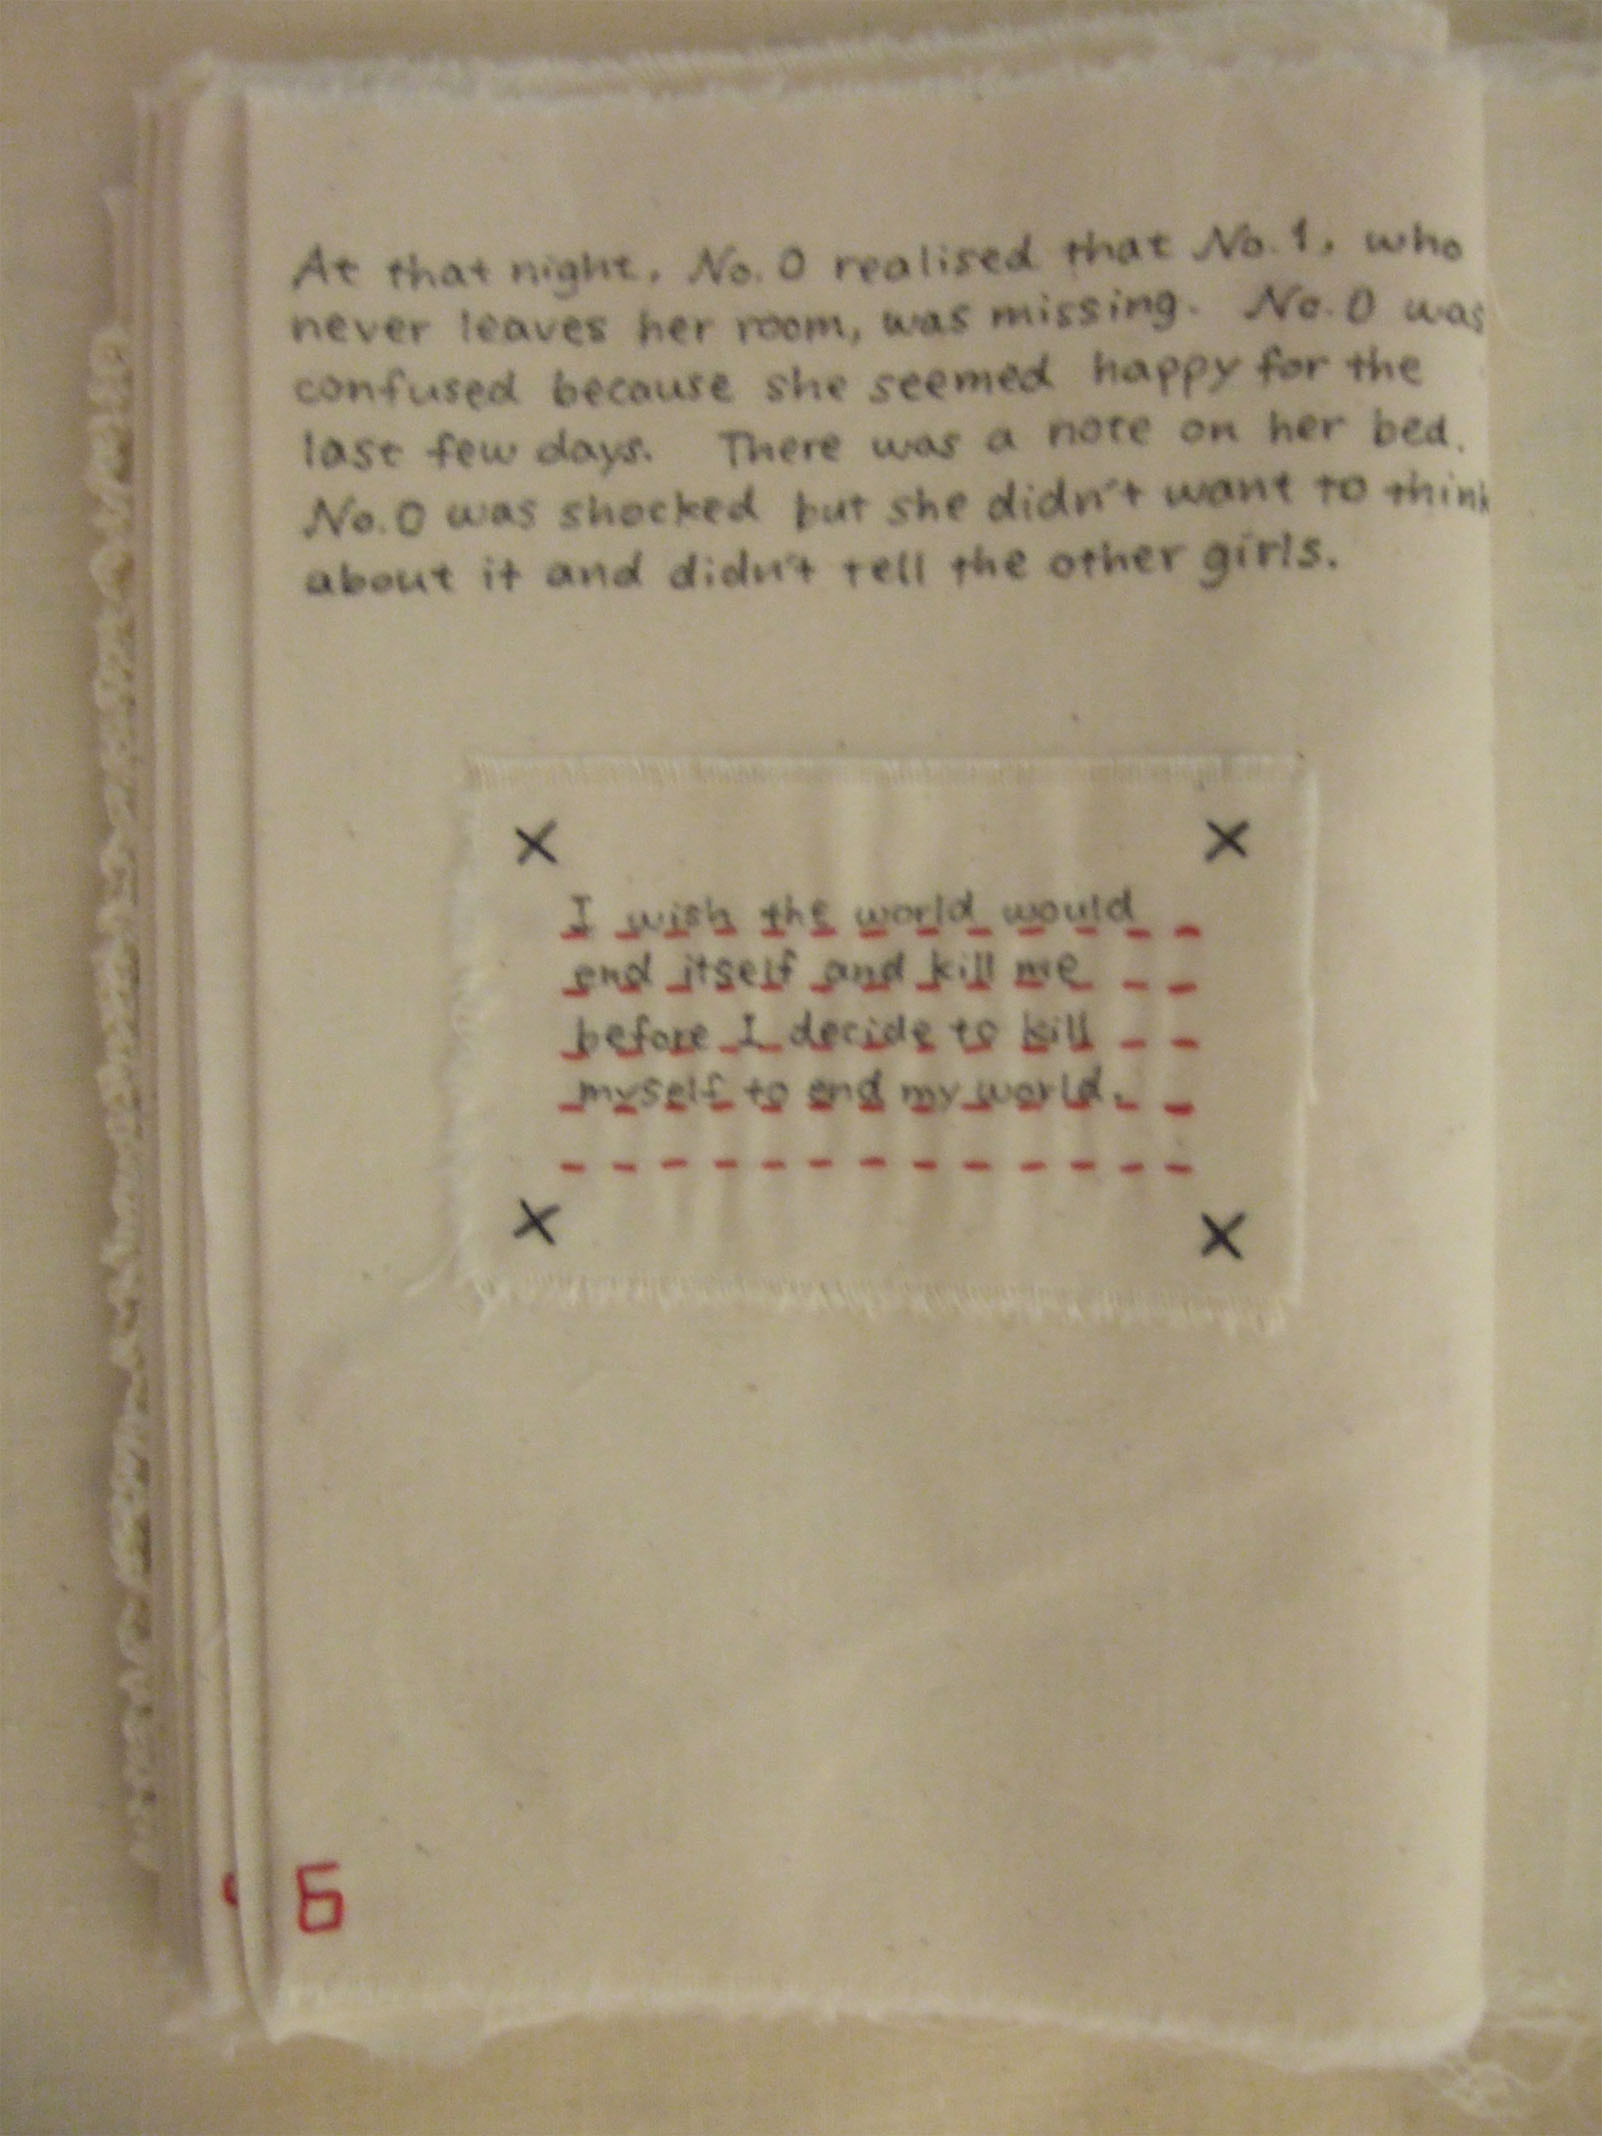 At that night, No. 0 realised that No. 1, who
never leaves her room, was missing. No. 0 was
confused because she seemed happy for the
last few days. There was a note on her bed.
No. 0 was shocked but she didn't want to think
about it and didn't tell the other girls.
I wish the world would
end itself and kill me
before I decide to kill
myself to end my world.
6